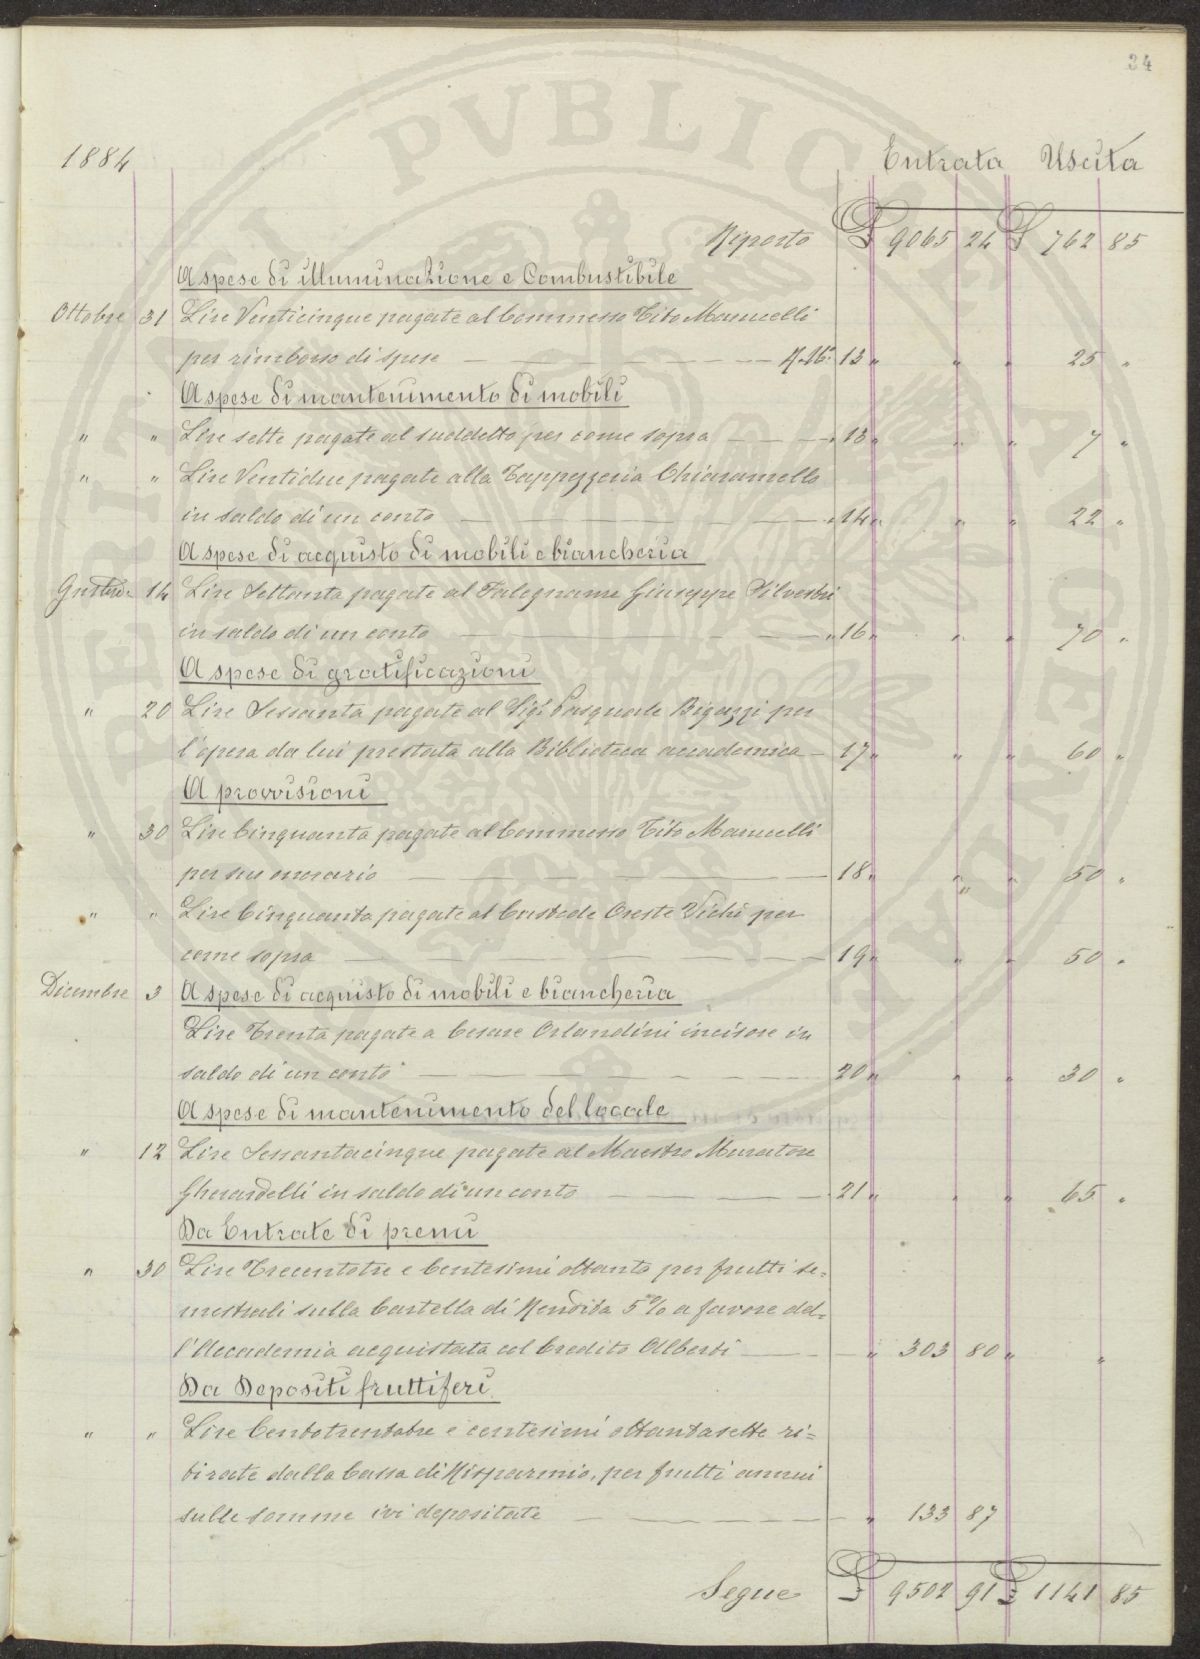 34
1884 Entrata Uscita
Riporto £ 9065 24 £ 762 85
A spese di illuminazione e Combustibile
Ottobre 31 Lire Venticinque pagate al Commesso Tito Marucelli
per rimborso di spese — 13 " " " 25 "
A spese di mantenimento di mobili
" " Lire sette pagate al suddetto per come sopra — " 13 " " " 7 "
" " Lire Ventidue pagate alla Tappezzeria Chiaramello
in saldo di un conto — " 14 " " " 22 "
A spese di acquisto di mobili e biancheria
14 Lire Settanta pagate al Falegname Giuseppe Silvestri
in saldo di un conto — " 16 " " " 70 "
A spese di gratificazioni
" 20 Lire Sessanta pagate al Sigr. Pasquale Bigazzi per
l'opera da lui prestata alla Biblioteca accademica — 17 " " " 60 "
A provvisioni
" 30 Lire Cinquanta pagate al Commesso Tito Marucelli
per suo onorario — 18 " " " 50 "
" " Lire Cinquanta pagate al Custode Oreste Vichi per
come sopra — 19 " " " 50 "
Dicembre 3 A spese di acquisto di mobili e biancheria
Lire Trenta pagate a Cesare Orlandini incisore in
saldo di un conto — 20 " " " 30 "
A spese di mantenimento del locale
" 12 Lire Sessantacinque pagate al Maestro Muratore
Gherardelli in saldo di un conto — 21 " " " 65 "
Da Entrate di premi
" 30 Lire Trecentotre e Centesimi ottanta per frutti se=
mestrali sulla Cartella di Rendita 5% a favore del=
l'Accademia acquistata col Credito Alberti — " 303 80 " "
Da Depositi fruttiferi
" " Lire Centotrentatre e centesimi ottantasette ri=
tirate dalla Cassa di Risparmio, per frutti annui
sulle somme ivi depositate — " 133 87
Segue £ 9502 91 £ 1141 85